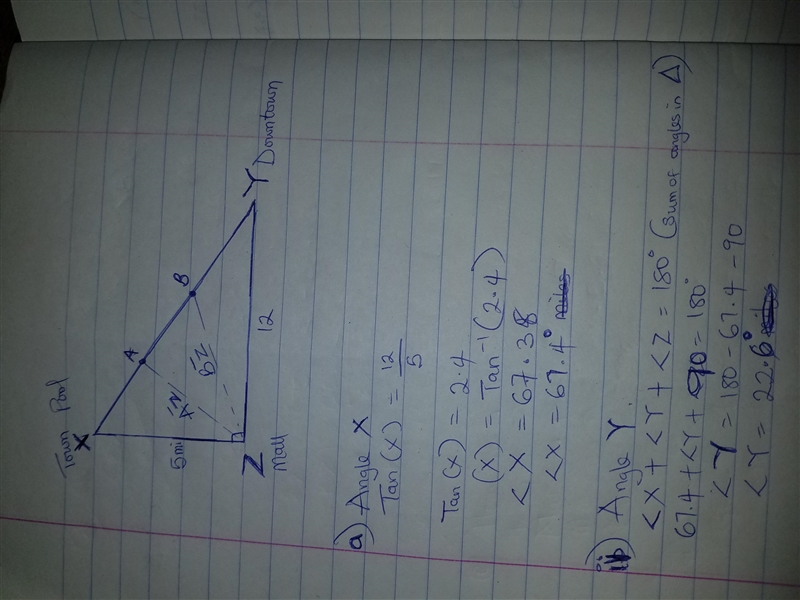 Town Pool
X
A
B
5mi
A̅Z̅
B̅Z̅
Z
Mall
12
Y Downtown
a) Angle X
Tan(X) = 12/5
Tan(X) = 2.4
(X) = Tan⁻¹(2.4)
<X = 67.38
<X = 67.4°
ii) Angle Y
<X + <Y + <Z = 180° (sum of angles in Δ)
67.4 + <Y + <90 = 180°
<Y = 180 - 67.4 - 90
<Y = 22.6°